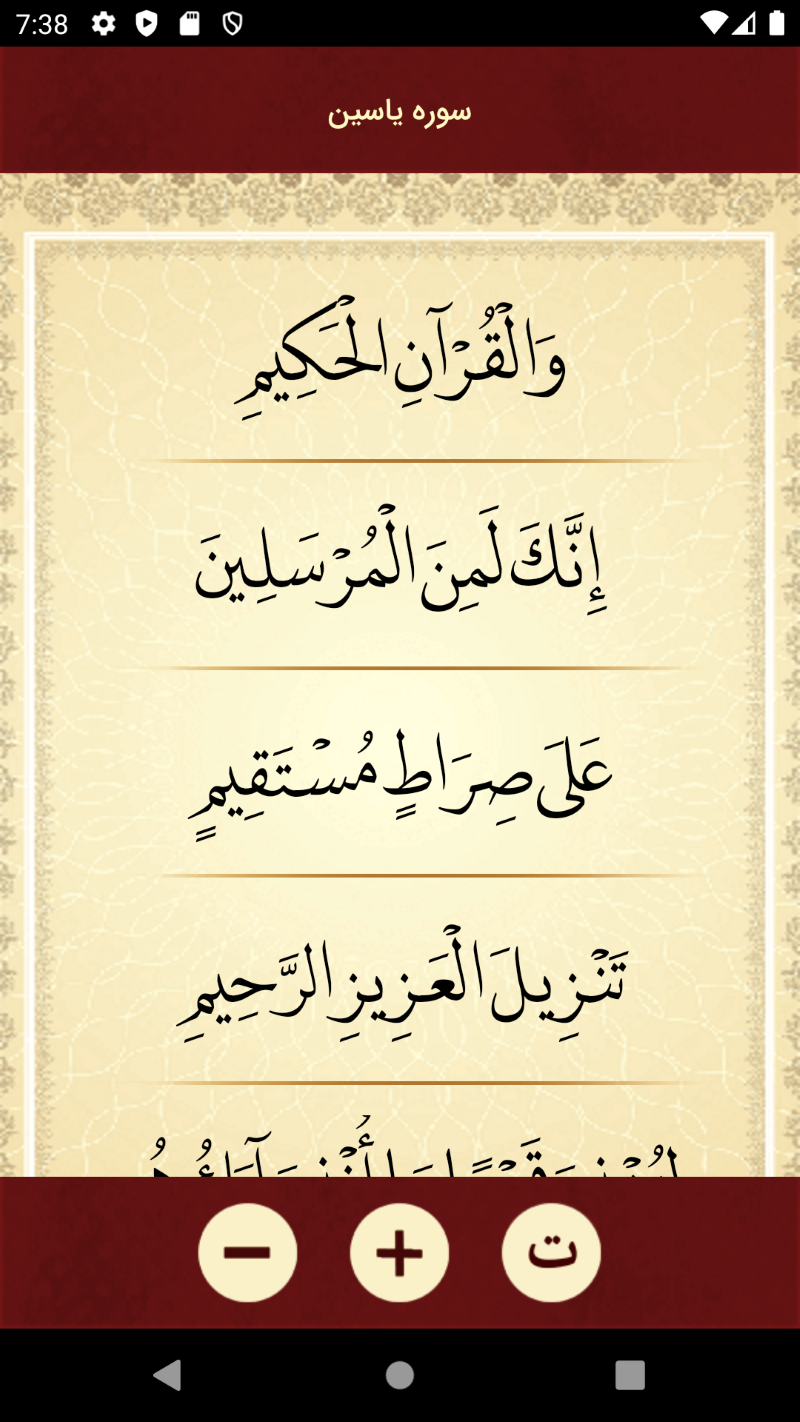 7:38
سوره یاسین
وَالْقُرْآنِ الْحَكِيمِ
إِنَّكَ لَمِنَ الْمُرْسَلِينَ
عَلَى صِرَاطٍ مُسْتَقِيمٍ
تَنْزِيلَ الْعَزِيزِ الرَّحِيمِ
ت